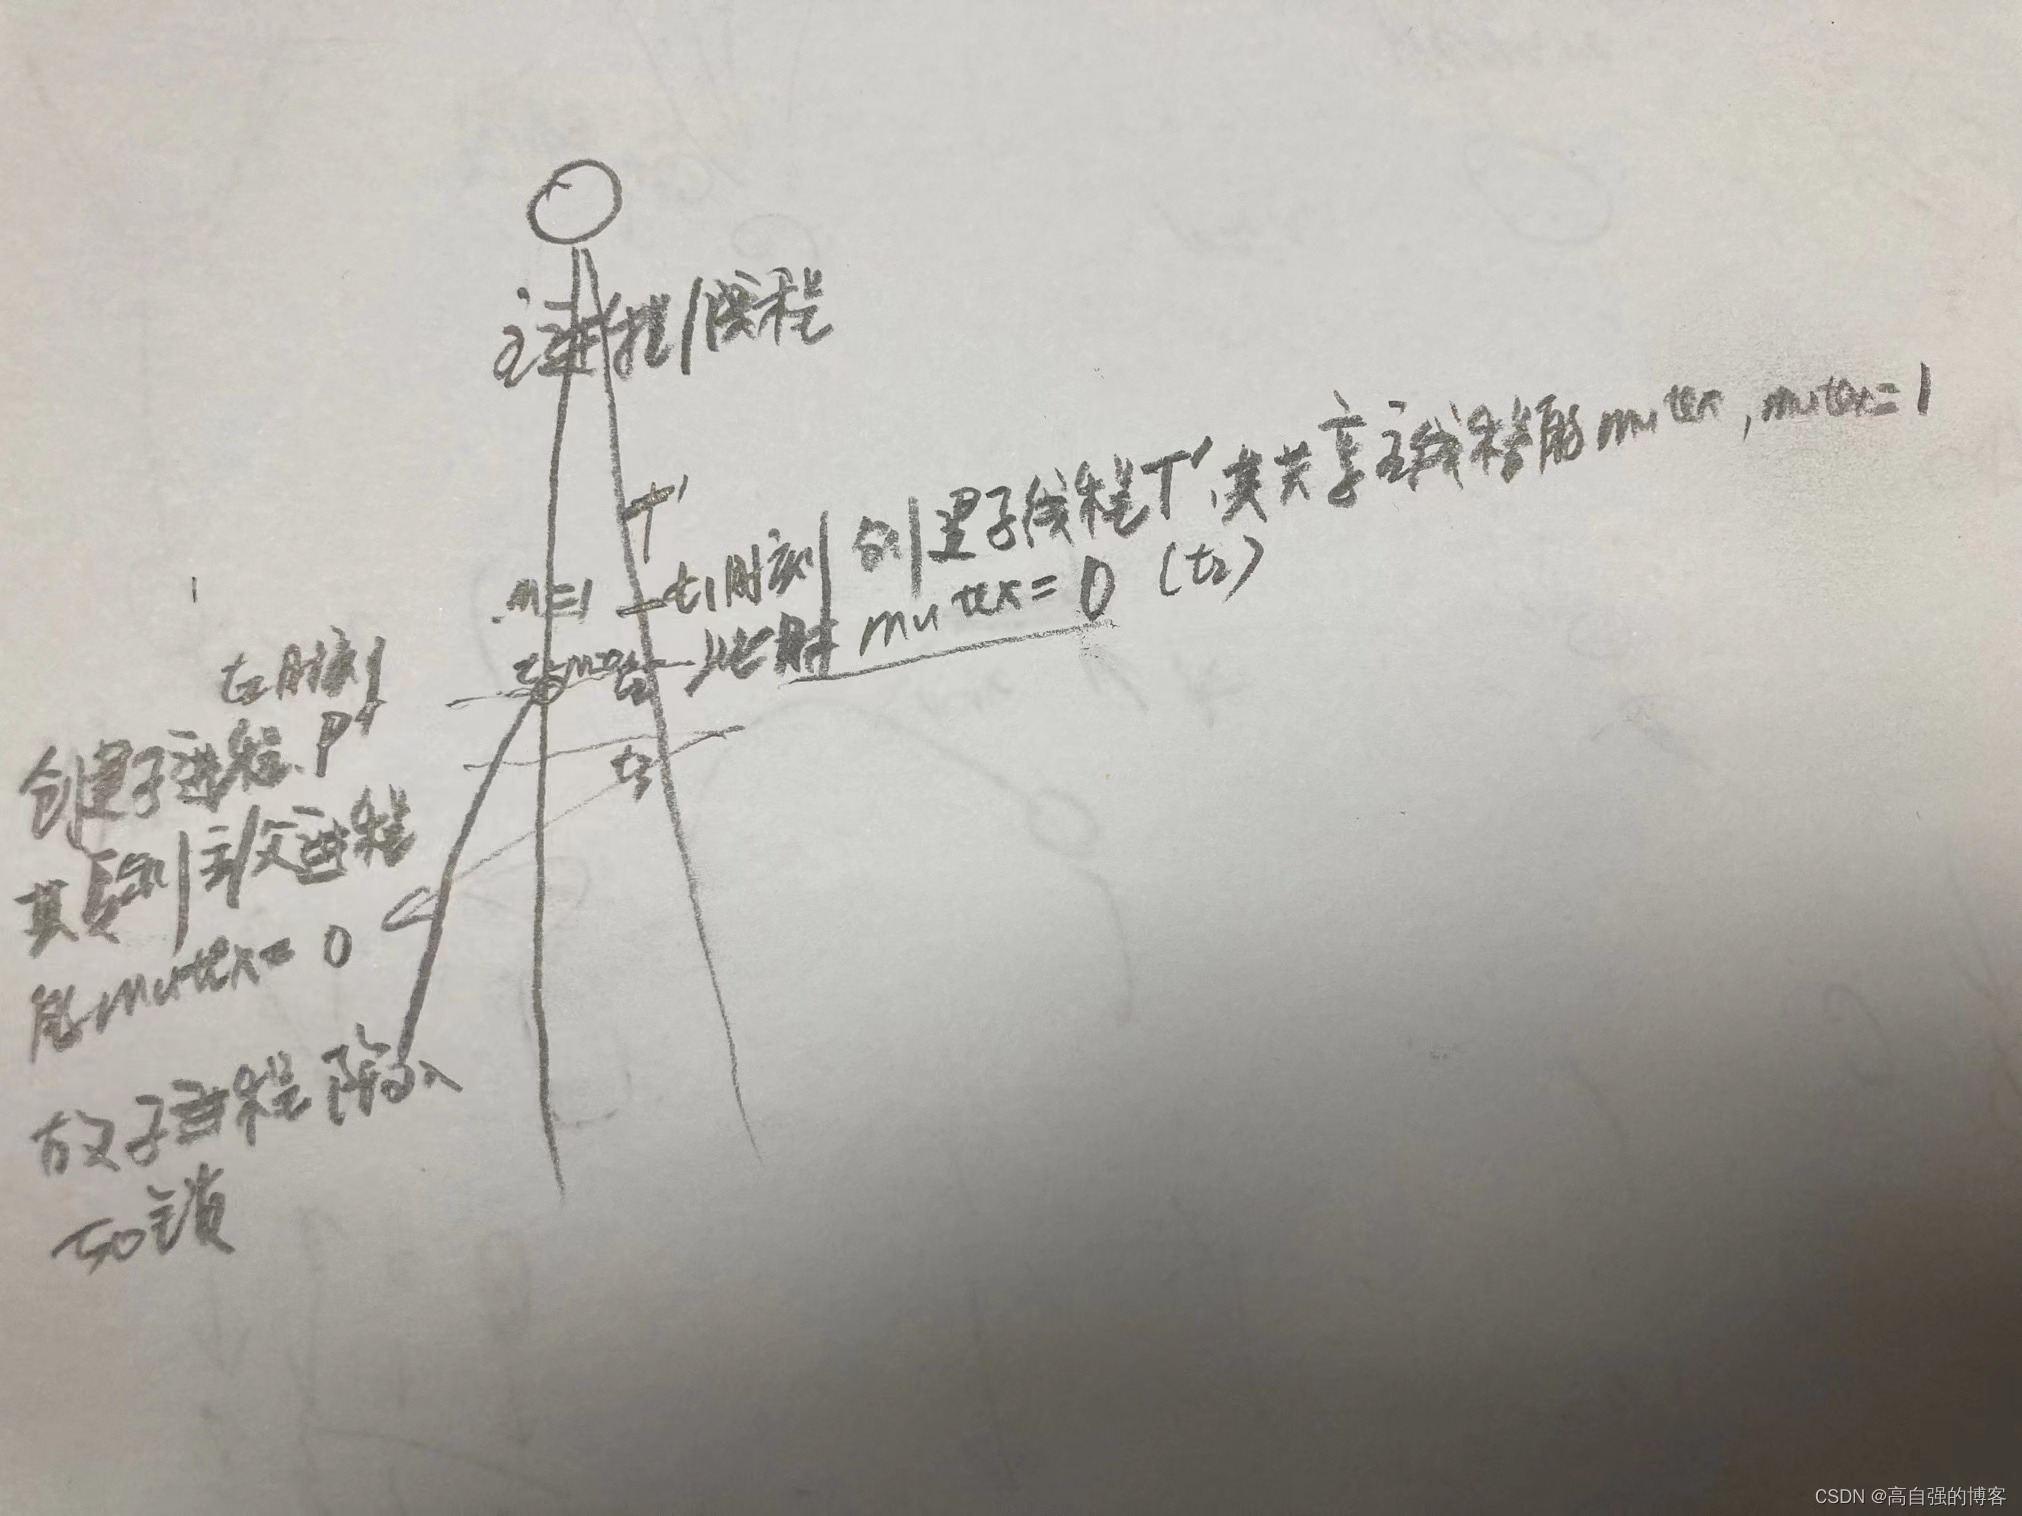 主进程/线程
T'
t1时刻 创建子线程T',其共享主线程的mutex,mutex=1
m=1
此时mutex=0 (t2)
t2 m=0 t2
t3
t2时刻
创建子进程P'
其复制主/父进程
的mutex=0
故子进程陷入
死锁
CSDN @高自强的博客